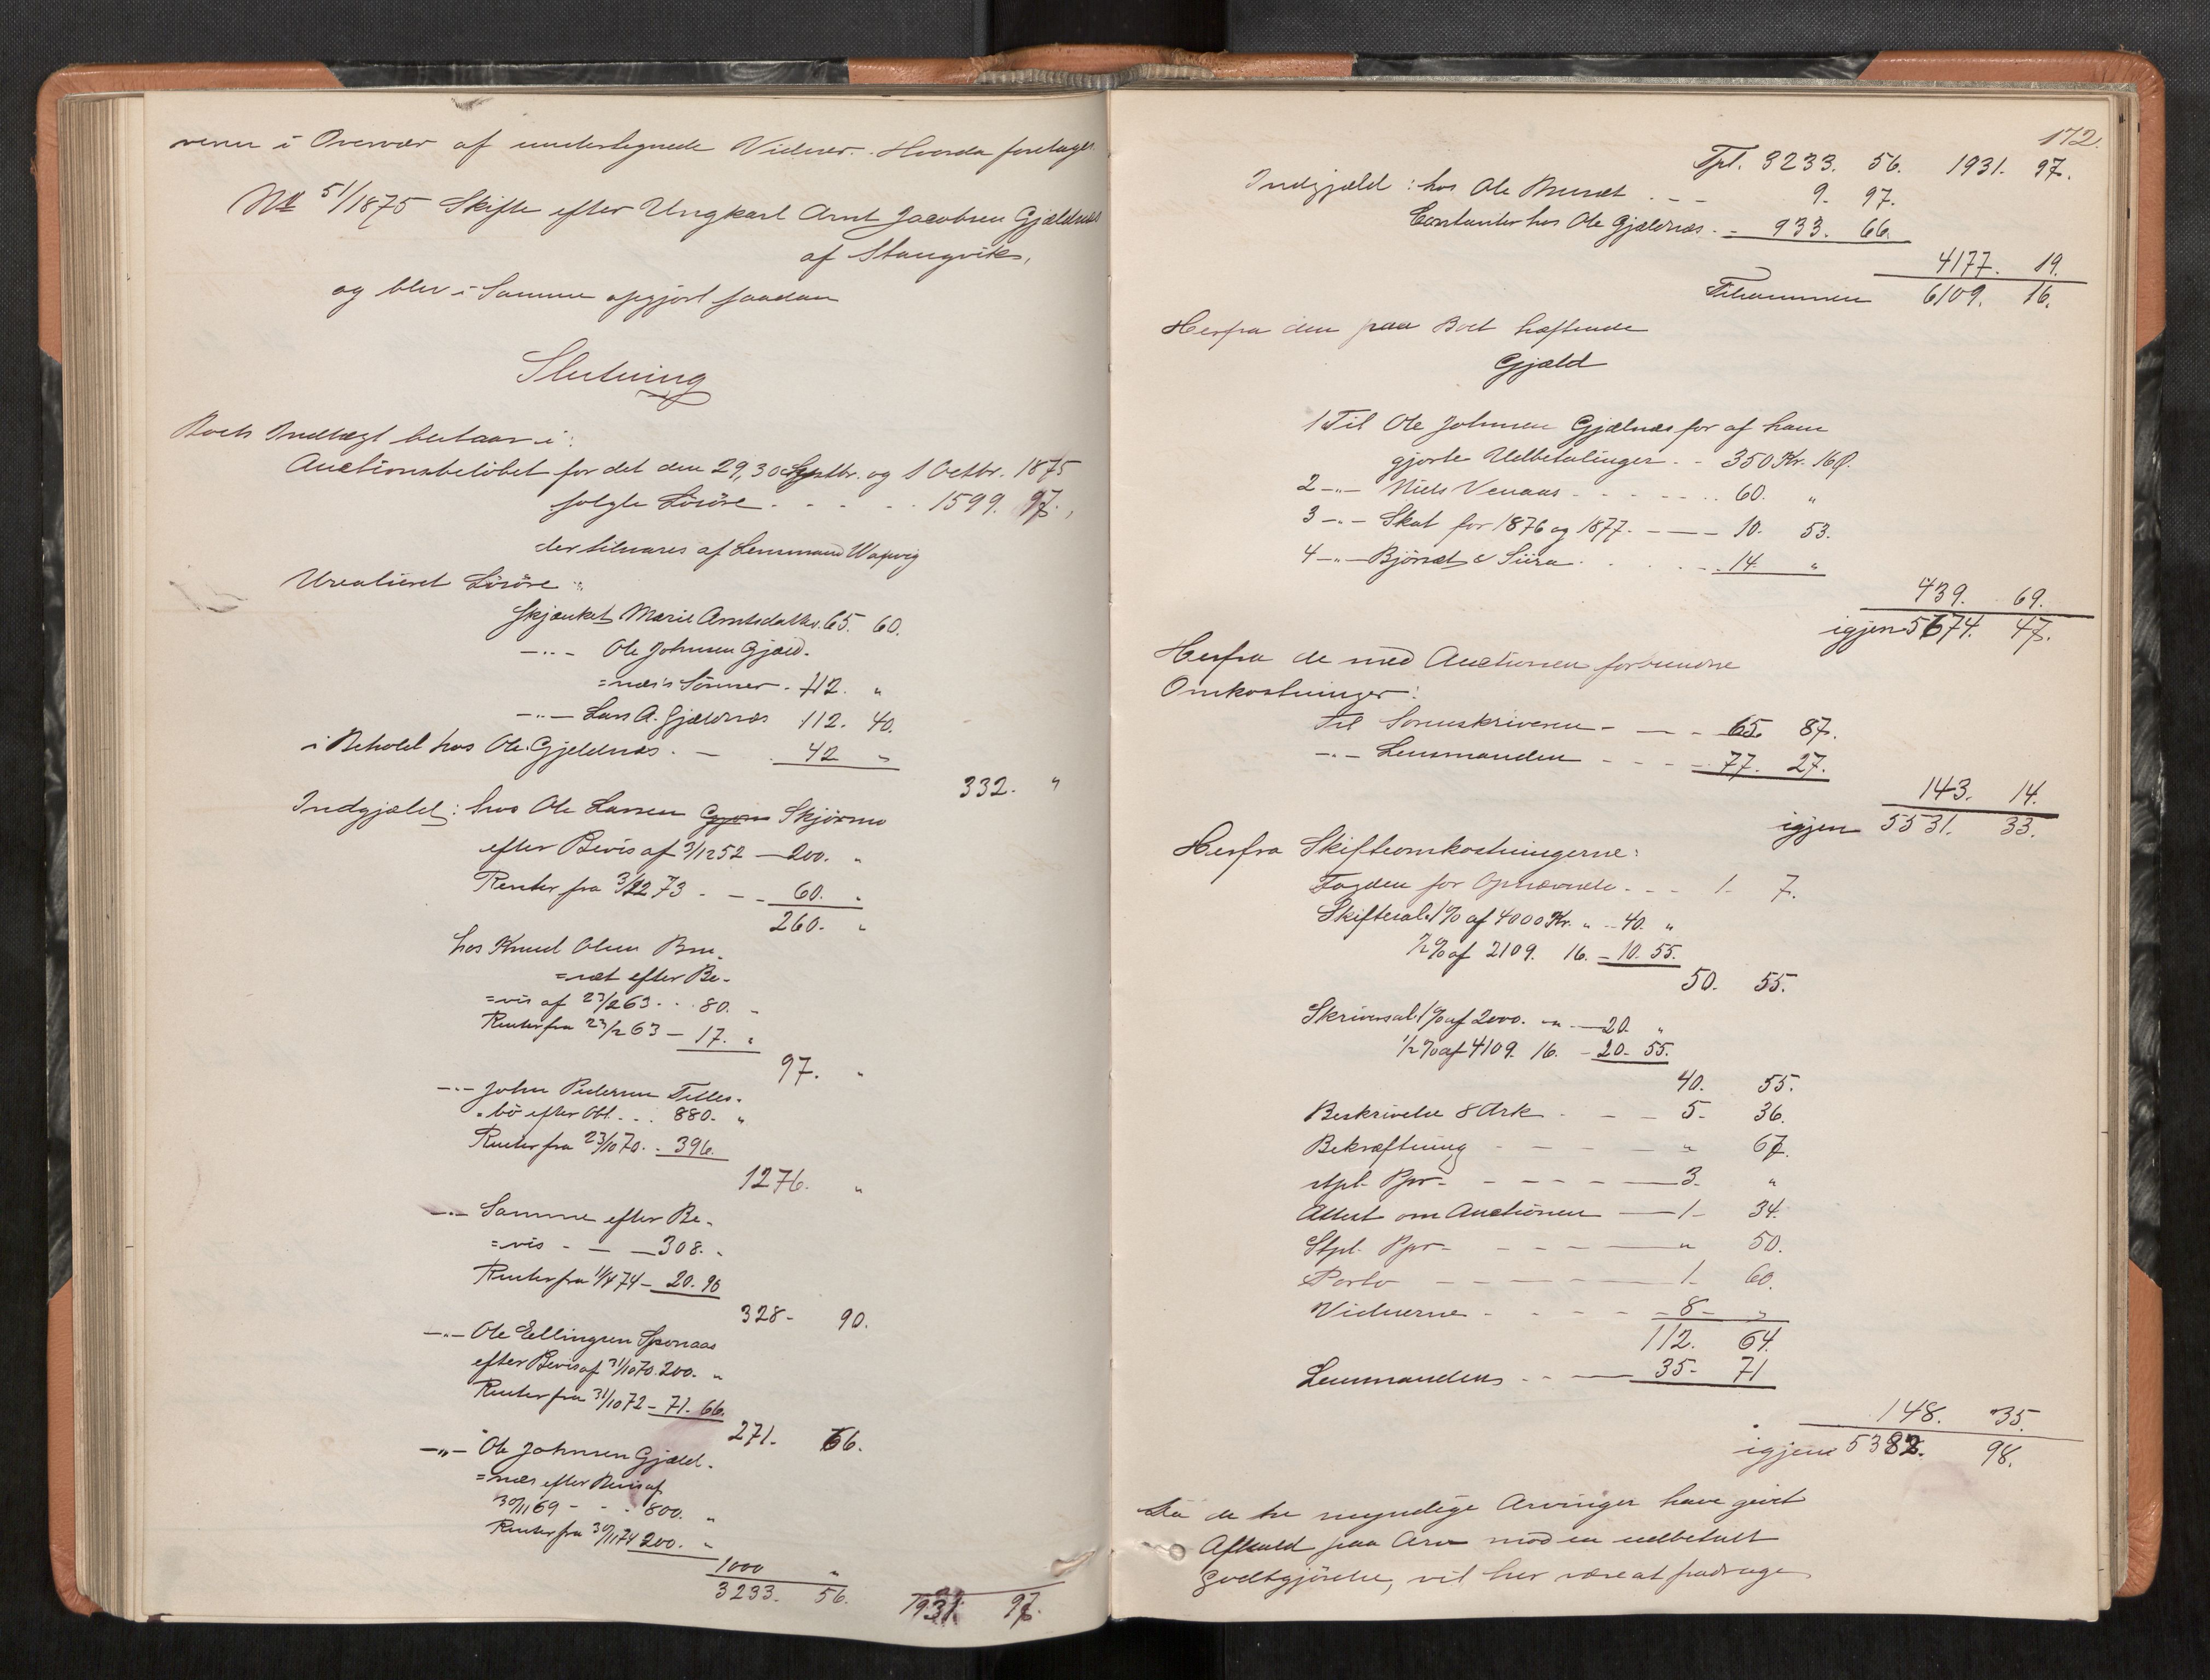 veren i Overvær af undertegnede Vidner. Hvorda foretages
No 51/1875 Skifte efter Ungkarl Arnt Jacobsen Gjeldnæs
af Stangvik,
og blev i Samme opgjort saadan
Slutning
Boets Indtægt bestaar i:
Auctionsbeløbet for det den 29, 30 Septbr. og 1 Octbr. 1875
solgte Løsøre . . . . . 1599. 97.
der tilsvares af Lensmand Wapvig
Urealiseret Løsøre "
skjænket Marie Arntsdatter 65. 60.
—"— Ole Johnsen Gjæld-
=næs's Sønner - 112. "
—"— Lars A. Gjældnæs 112. 40.
i Behold hos Ole Gjeldnæs. — 42 "
332. "
Indgjæld: hos Ole Larsen Skjørmo
efter Bevis af 3/12 52 — 200. "
Renter fra 3/12 73 - - 60. "
260. "
hos Knud Olsen Bru-
=sæt efter Be-
=vis af 23/2 63 - - 80. "
Renter fra 23/2 63 — 17. "
97. "
—"— John Pedersen Telles-
=bø efter Obl. . . 880. "
Renter fra 23/10 70. - 396.
1276. "
—"— Samme efter Be-
=vis - — — 308. "
Renter fra 11/4 74 — 20. 90
328 - 90.
—"— Ole Ellingsen Sponaas
efter Bevis af 31/10 70. 200. "
Renter fra 31/10 72 - 71. 66.
271. 66.
—"— Ole Johnsen Gjæld-
=næs efter Bevis af
30/11 69 - - - 800. "
Renter fra 30/11 74 200. "
1000 "
3233. 56. 1931. 97.
172.
Tpt. 3233. 56. 1931. 97.
Indgjæld: hos Ole Brusæt . - - 9. 97.
Contanter hos Ole Gjeldnæs. - 933. 66.
4177. 19.
Tilsammen 6109. 16.
Herfra den paa Boet hæftende
Gjæld
1 Til Ole Johnsen Gjælnæs for af ham
gjorte Udbetalinger. - 350 Kr. 16 Ø.
2 —"— Niels Venaas - - - - - 60. "
3 —"— Skat for 1876 og 1877. - — - 10. 53.
4 —"— Bjørsæt & Siira . . . - 14. "
439. 69.
igjen 5674. 47.
Herfra de med Auctionen forbundne
Omkostninger:
Til Sorenskriveren - — - 65. 87.
—"— Lensmanden - - - - 77. 27.
143. 14.
igjen 5531. 33.
Herfra Skifteomkostningerne:
Fogden for Opnævnelse - - - 1- 7.
Skiftesal. 1 % af 4000 Kr. " - 40. "
1/2 % af 2109. 16. - 10. 55.
50. 55.
Skriversal. 1 % af 2000. - " - 20. "
1/2 % af 4109. 16. - 20. 55.
40. 55.
Beskrivelse 8 Ark - - - 5 - 36.
Bekræftning - - - — " 67.
stpl. Ppr - - - - - — 3. "
Attest om Auctionen — 1 - 34.
Stpl. Ppr - - - - — " 50.
Porto — — — — — 1. 60.
Vidnerne - - - - - 8 - "
112. 64.
Lensmanden - - — 35 - 71
148. 35
igjen 5382. 98.
Da de tre myndige Arvinger have givet
Afkald paa Arv mod en udbetalt
Godtgjørelse, vil her være at fradrage